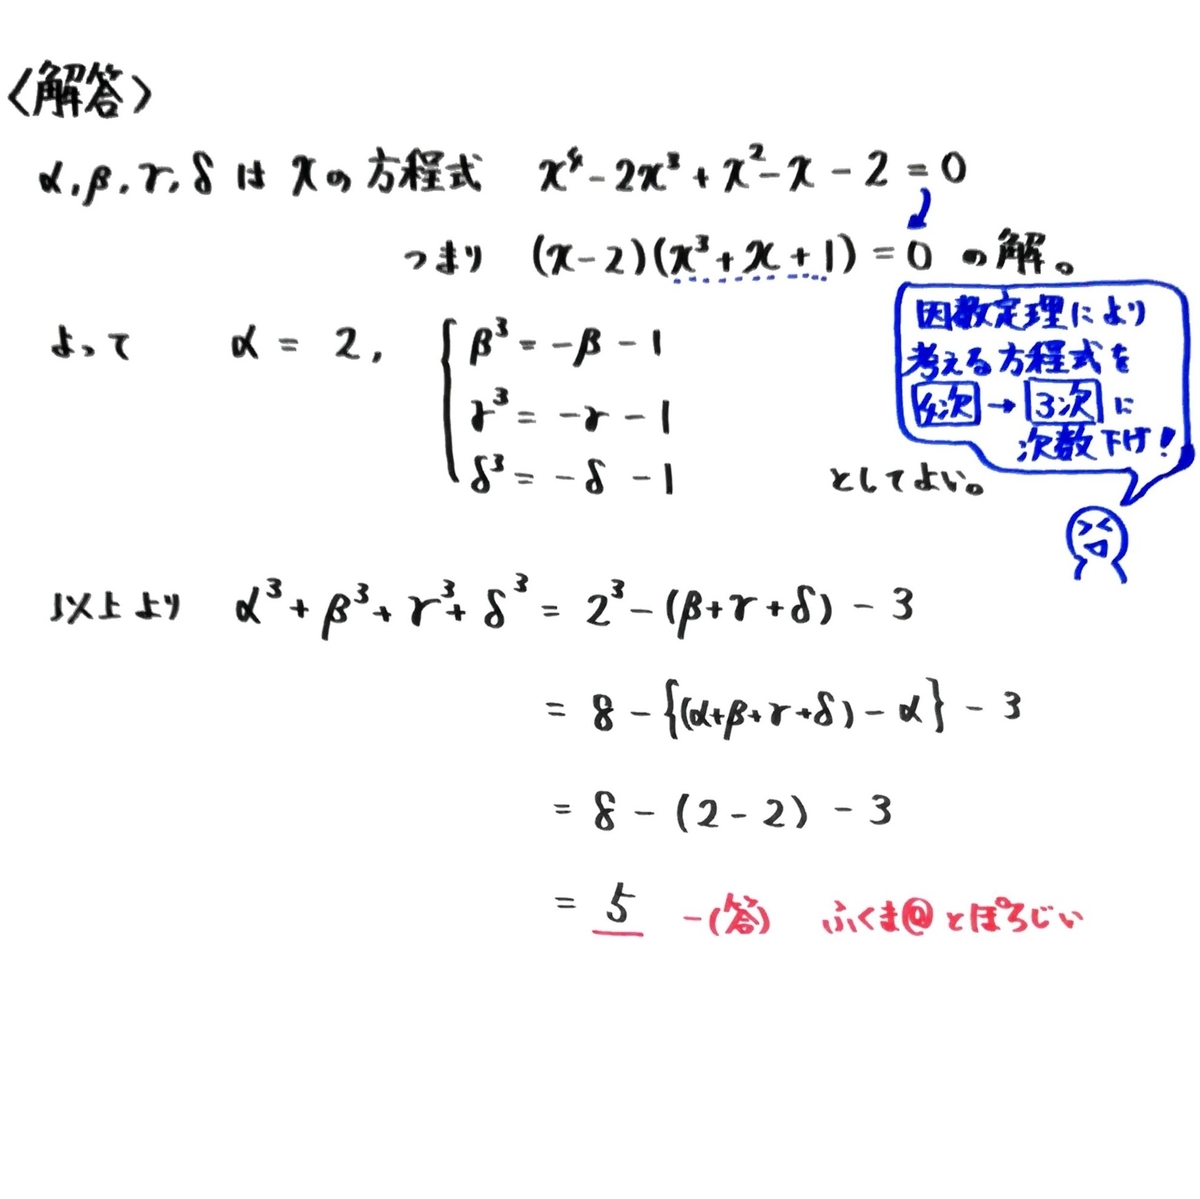 〈解答〉
α,β,γ,δ は xの方程式 x⁴-2x³+x²-x-2=0
つまり (x-2)(x³+x+1)=0 の解。
因数定理により
考える方程式を
4次→3次に
次数下げ!
よって α=2, β³=-β-1
γ³=-γ-1
δ³=-δ-1 としてよい。
以上より α³+β³+γ³+δ³=2³-(β+γ+δ)-3
=8-{(α+β+γ+δ)-α}-3
=8-(2-2)-3
=5 -(答) ふくま@とぽろじい